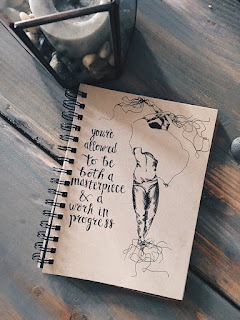 you're
allowed
to be
both a
masterpiece
& a
work in
progress